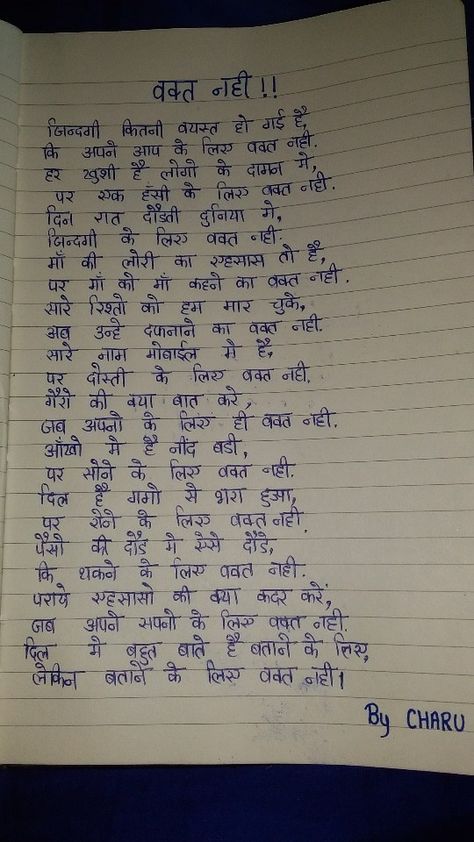 वक्त नही !!
जिन्दगी कितनी वयस्त हो गई है,
कि अपने आप के लिए वक्त नही.
हर खुशी है लोगो के दामन मे,
पर एक हँसी के लिए वक्त नही.
दिन रात दौडती दुनिया मे,
जिन्दगी के लिए वक्त नही.
माँ की लोरी का एहसास तो है,
पर माँ को माँ कहने का वक्त नही.
सारे रिश्तो को हम मार चुके,
अब उन्हे दफनाने का वक्त नही.
सारे नाम मोबाईल मे है,
पर दोस्ती के लिए वक्त नही.
गैरो की क्या बात करे,
जब अपनो के लिए ही वक्त नही.
आँखो मे है नींद बडी,
पर सोने के लिए वक्त नही.
दिल है गमो से भरा हुआ,
पर रोने के लिए वक्त नही.
पैसो की दौड मे ऐसे दौडे,
कि थकने के लिए वक्त नही.
पराये एहसासो की क्या कदर करें,
जब अपने सपनो के लिए वक्त नही.
दिल मे बहुत बाते है बताने के लिए,
लेकिन बताने के लिए वक्त नही।
By CHARU